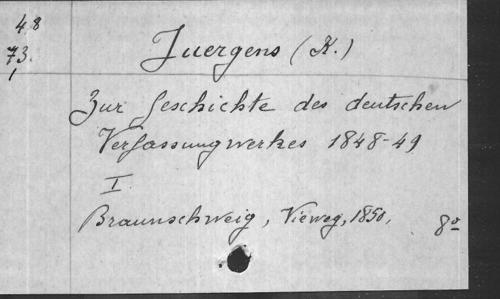 48
73.
Juergens (K.)
Zur Geschichte des deutschen
Verfassungwerkes 1848-49
I.
Braunschweig, Vieweg, 1850, 8º